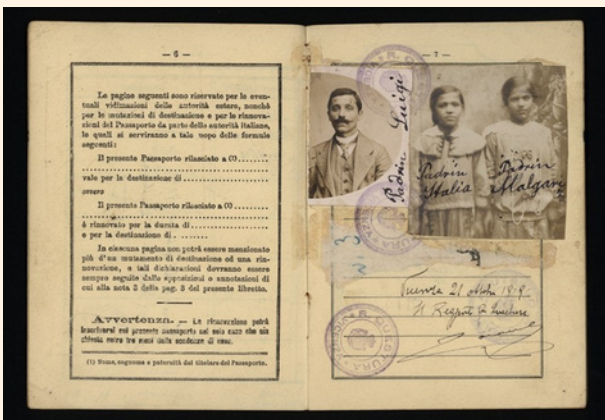 — 6 —
Le pagine seguenti sono riservate per le even-
tuali vidimazioni delle autorità estere, nonchè
per le mutazioni di destinazione e per le rinnova-
zioni del Passaporto da parte delle autorità italiane,
le quali si serviranno a tale uopo delle formule
seguenti:
Il presente Passaporto rilasciato a (1)
vale per la destinazione di
ovvero
Il presente Passaporto rilasciato a (1)
è rinnovato per la durata di
e per la destinazione di
In ciascuna pagina non potrà essere menzionato
più d'un mutamento di destinazione od una rin-
novazione, e tali dichiarazioni dovranno essere
sempre seguite dalle apposizioni o annotazioni di
cui alla nota 3 della pag. 3 del presente libretto.
Avvertenza. — La rinnovazione potrà
inscriversi sul presente passaporto nel solo caso che sia
chiesta entro tre mesi dalla scadenza di esso.
(1) Nome, cognome e paternità del titolare del Passaporto.
— 7 —
Padrin Luigi
Padrin
Italia
Padrin
N. 3
21 1919
Il
R. QUESTURA